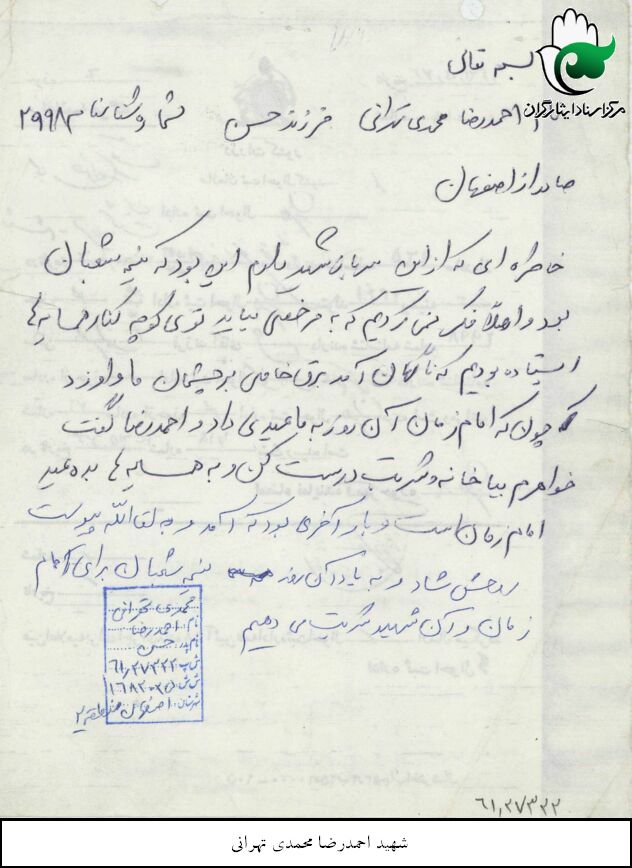 بسمه تعالی
مرکز اسناد ایثارگران
احمدرضا محمدی تهرانی فرزند حسن شماره شناسنامه ۲۹۹۸
صادر از اصفهان
خاطره ای که از این سرباز شهید یادم این بود که نیمه شعبان
بود و اصلاً فکر نمی کردیم که به مرخصی بیاید توی کوچه کنار همسایه ها
ایستاده بودیم که ناگهان آمد برق خاصی در چشمان ما و او زد
که چون که امام زمان آن روز به ما عیدی داد و احمدرضا گفت
خواهرم بیا خانه و شربت درست کن و به همسایه ها بده عید
امام زمان است و بار آخری بود که آمد و به لقاالله پیوست
روحش شاد و به یاد آن روز نیمه شعبان برای امام
زمان و آن شهید شربت می دهیم
محمدی تهرانی
نام: احمدرضا
نام پدر: حسن
ش پ ۶۱,۲۷۳۲۲
ش ش
شهرستان: اصفهان منطقه ۲
۶۱,۲۷۳۲۲
شهید احمدرضا محمدی تهرانی